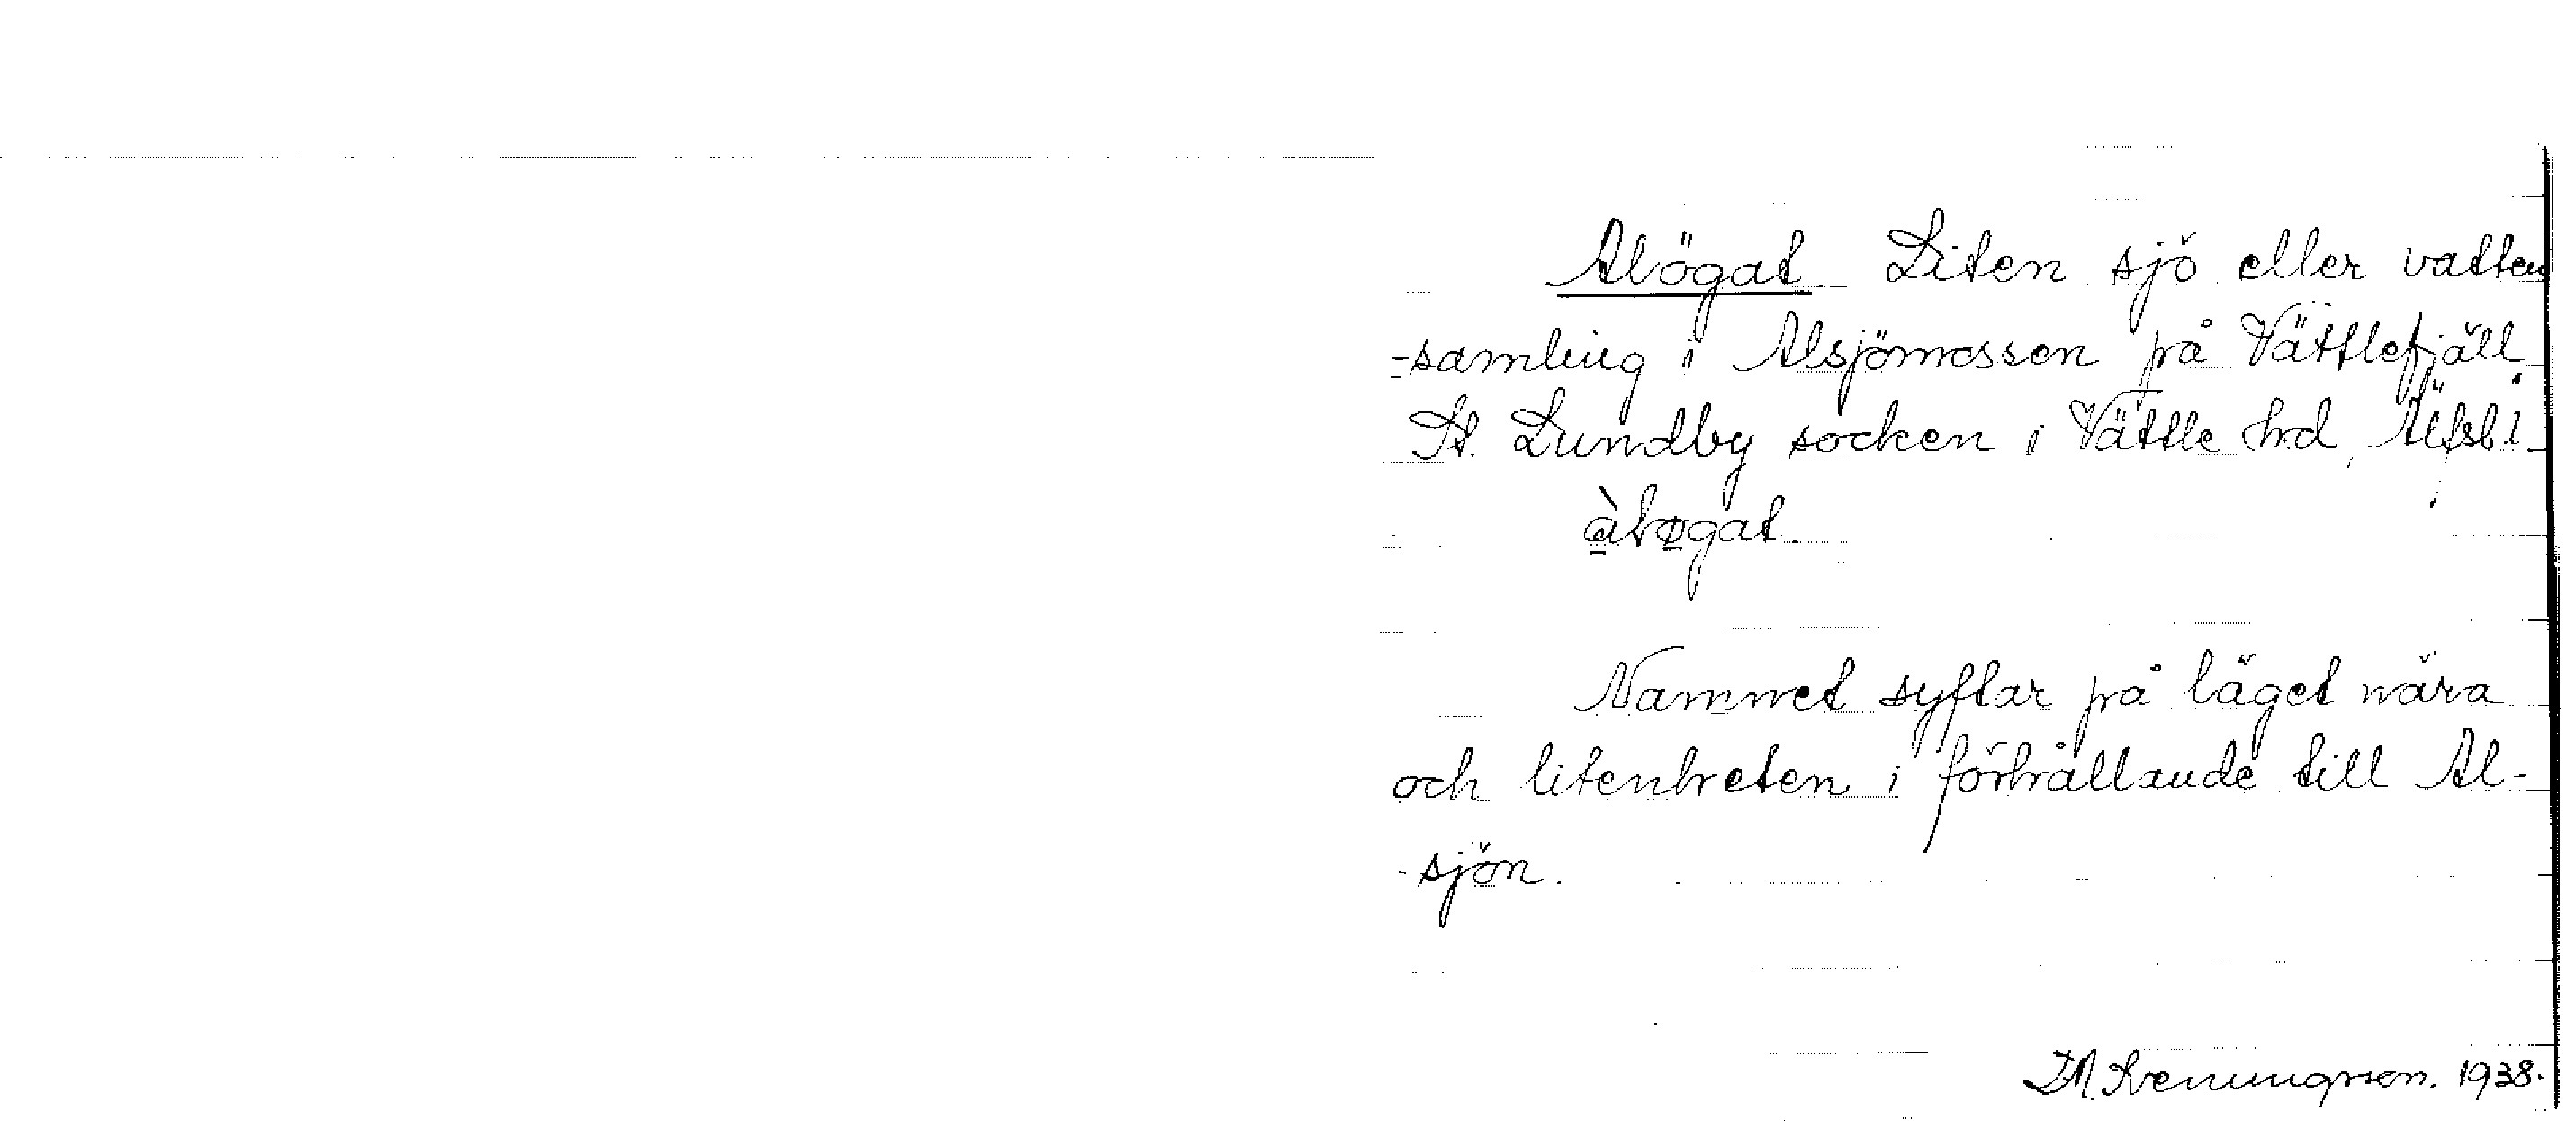 Alögat. Liten sjö eller vatten
-samling i Alsjömossen på Vättlefjäll,
St. Lundby socken i Vättle hd, Älfsb l.
àløgat.
Namnet syftar på läget nära
och litenheten i förhållande till Al-
-sjön.
1938.